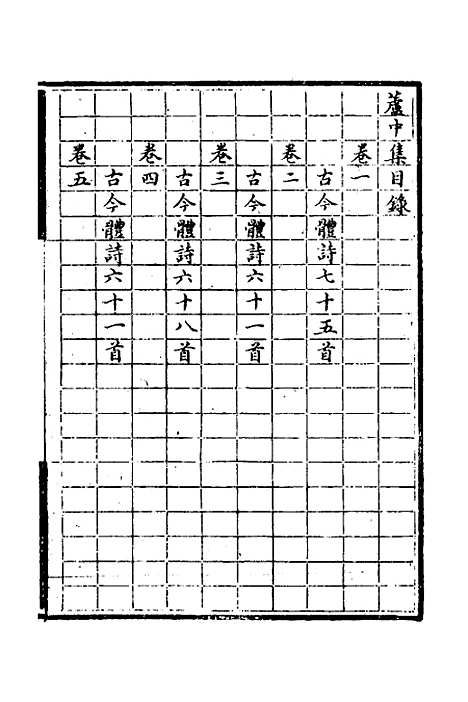 蘆中集目錄
卷一
古今體詩七十五首
卷二
古今體詩六十一首
卷三
古今體詩六十八首
卷四
古今體詩六十一首
卷五